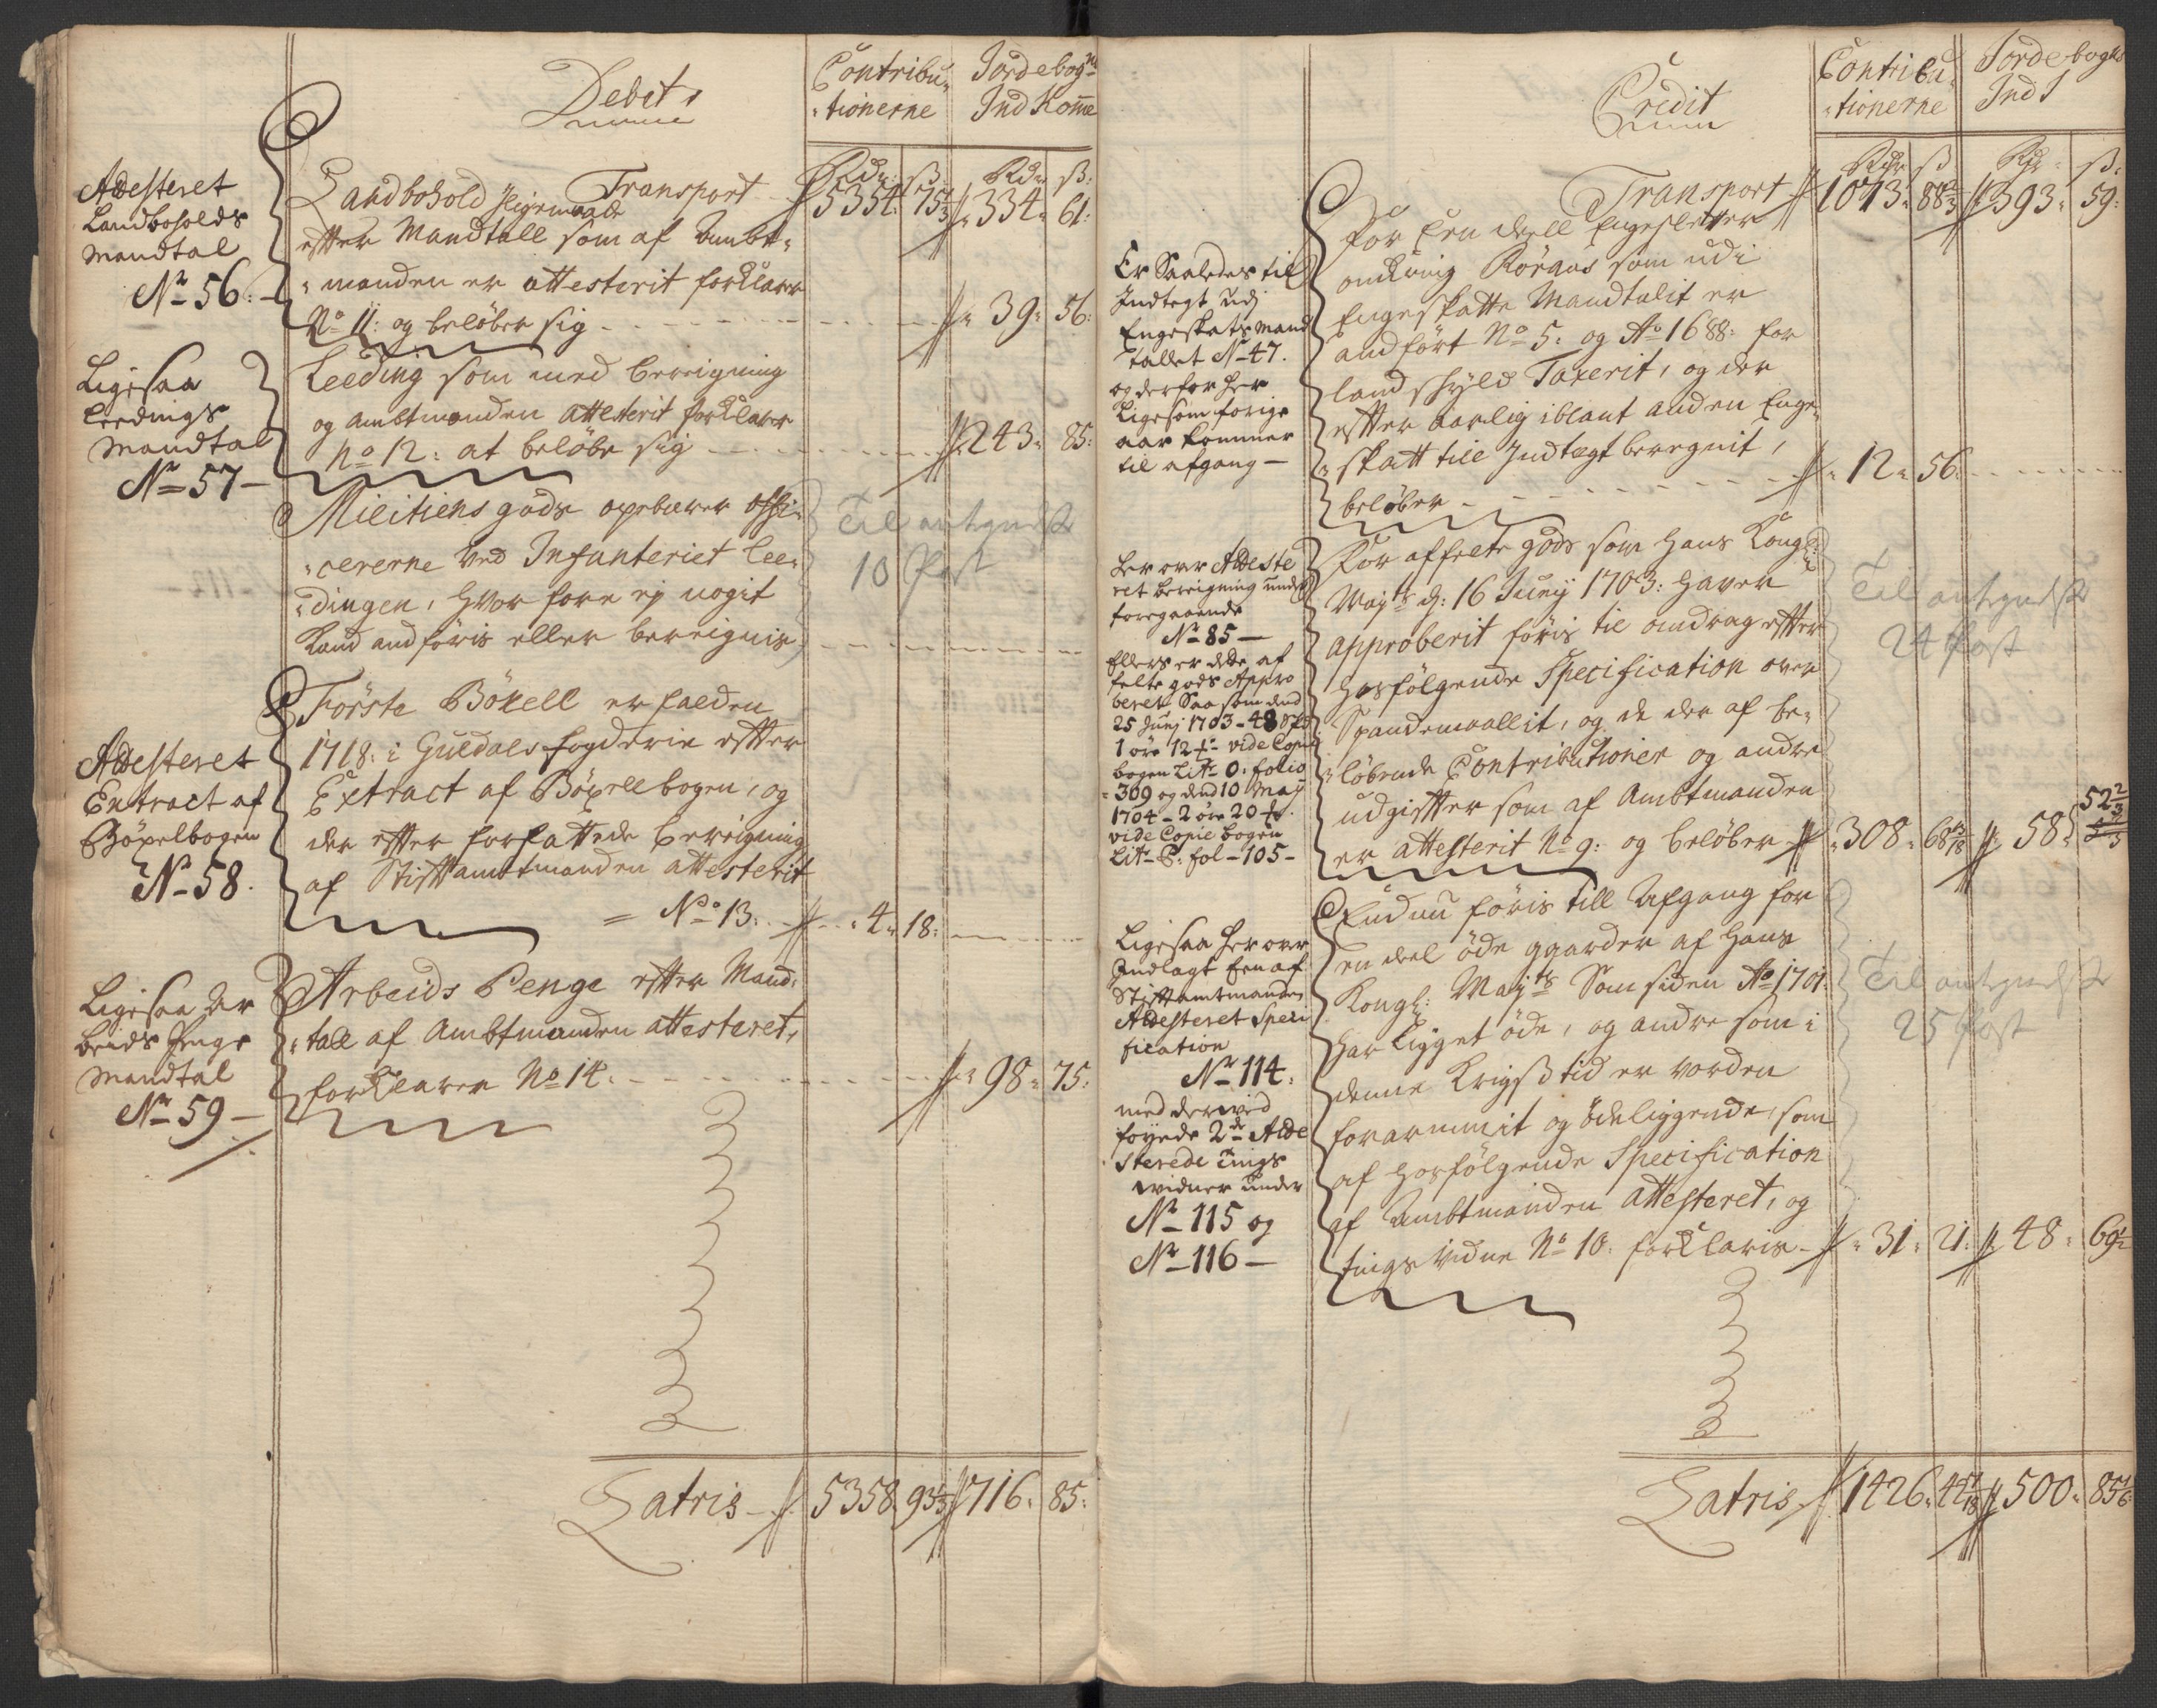 Debet
Contribu-
tionerne
Jordebog
Ind Komē
Rdr ß. Rdr ß:
Transport 5354: 15⅓ 334: 61:
Attesteret
Landboholds
Mandtal
No 56.
Landbohold
effter Mandtall som af Ambt-
manden er attesterit forklarer
No 11: og beløber sig 39: 56:
Ligesaa
Leedings
Mandtal
No 57
Leeding som med bereigning
og Ambtmanden attesterit forklarer
No 12: at beløbe sig 243: 85:
Militiens gods opebærer offi-
cererne ved Infanteriet Lee-
dingen, hvor fore ej nogit
Kand andføris eller bereignis
Til antegnelse
10 Post
Attesteret
Extract af
Böxelbogen
No 58.
Förste Böxell er falden
1718: i Guldals fogderie effter
Extract af Böxellbogen, og
der effter forfattede bereigning
af Stifftamtmanden attesterit
No 13: 4: 18:
Ligesaa Ar
beids Penge
Mandtal
No 59
Arbeids Penge effter Mand-
tall af Ambtmanden attesteret,
forklarer No 14: 98: 75:
Latris 5358 93⅓ 716: 85:
Credit
Contribu-
tionerne
Jordebogs
Ind
Rdr ß Rdr ß:
Transport 1073: 88⅔ 393: 59:
Er Saaledes til
Indtegt udj
Engeskats Mand
tallet No 47.
og derfor her
Ligesom forige
aar kommer
til afgang
For een deell Engesletter
omkring Röraas som udi
Engeskatte Mandtalit er
andfört No 5: og Ao 1688: for
landskyld Taxerit, og der
effter aarlig iblant anden Enge-
skatt till Indtegt beregnit,
beløber 12: 56:
Her over Atteste
ret bereigning under
foregaaende
No 85
Ellers er dette af
felte gods Appro
beret Saa som dend
25 Junj 1703
1 öre 12 vide Copie
bogen Lit O: folio
309 og dend 10 Maj
1704 - 2 öre 20
vide Copie bogen
Lit P: fol - 105 -
For affelte gods som Hans Kongl:
Mayts d: 16 Junij 1703: haver
approberit föris til omdrag effter
hosfölgende Specification over
Spandemaallit, og de der af be-
löbende Contributioner og andre
udgiffter som af Ambtmanden
er attesterit No 9: og beløber 308: 68 58: 52⅔
Til antegnelse
24 Post
Ligesaa her over
Indlagt een af
Stifftamtmanden
Attesteret Speci
fication
No 114.
med derved
föyede 2de Atte
sterede tings
widner under
No 115 og
No 116
Endnu föris till Afgang for
en deel öde gaarder af Hans
Kongl: Mayts Som siden Ao 1701:
har ligget öde, og andre som i
denne Krigs tid er vorden
forarmmit og ödeliggende, som
af hosfölgende Specification
af Ambtmanden attesteret, og
tingsvidne No 10: forklaris 31: 21: 48: 69½
Til antegnelse
25 Post
Latris 1426: 42 500: 85